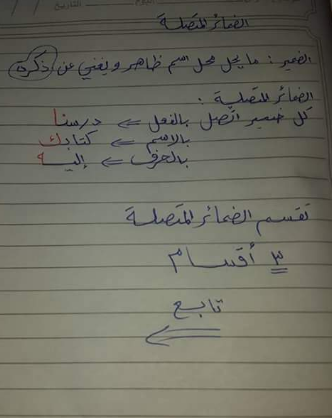 الضمائر المتصلة
الضمير : ما يحل محل اسم ظاهر ويغني عن ذكره
الضمائر المتصلة :
كل ضمير اتصل بالفعل ⇐ درسنا
بالاسم ⇐ كتابك
بالحرف ⇐ إليه
تقسم الضمائر المتصلة
٣ أقسام
تابع